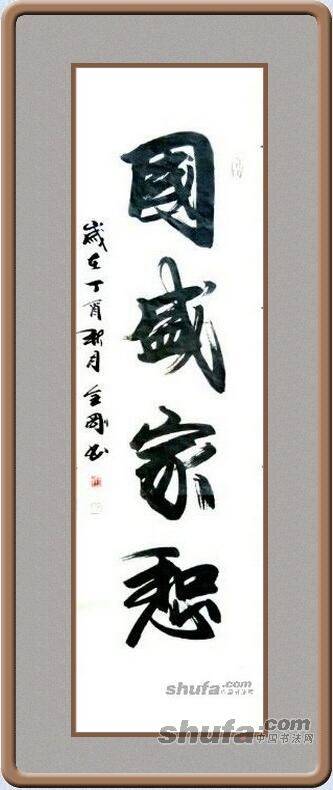 國盛家惒
歲在丁酉秋月金剛书
shufa.com
中国书法网
shufa.com
中国书法网